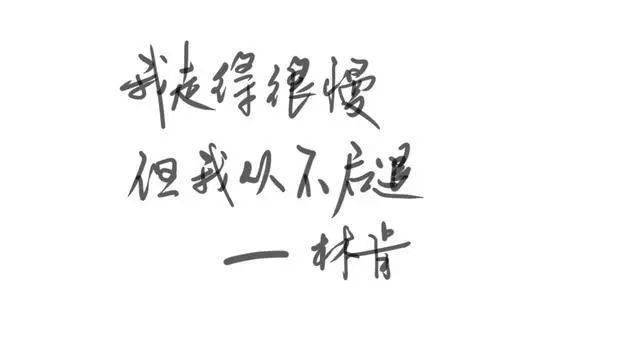 我走得很慢
但我从不后退
— 林肯